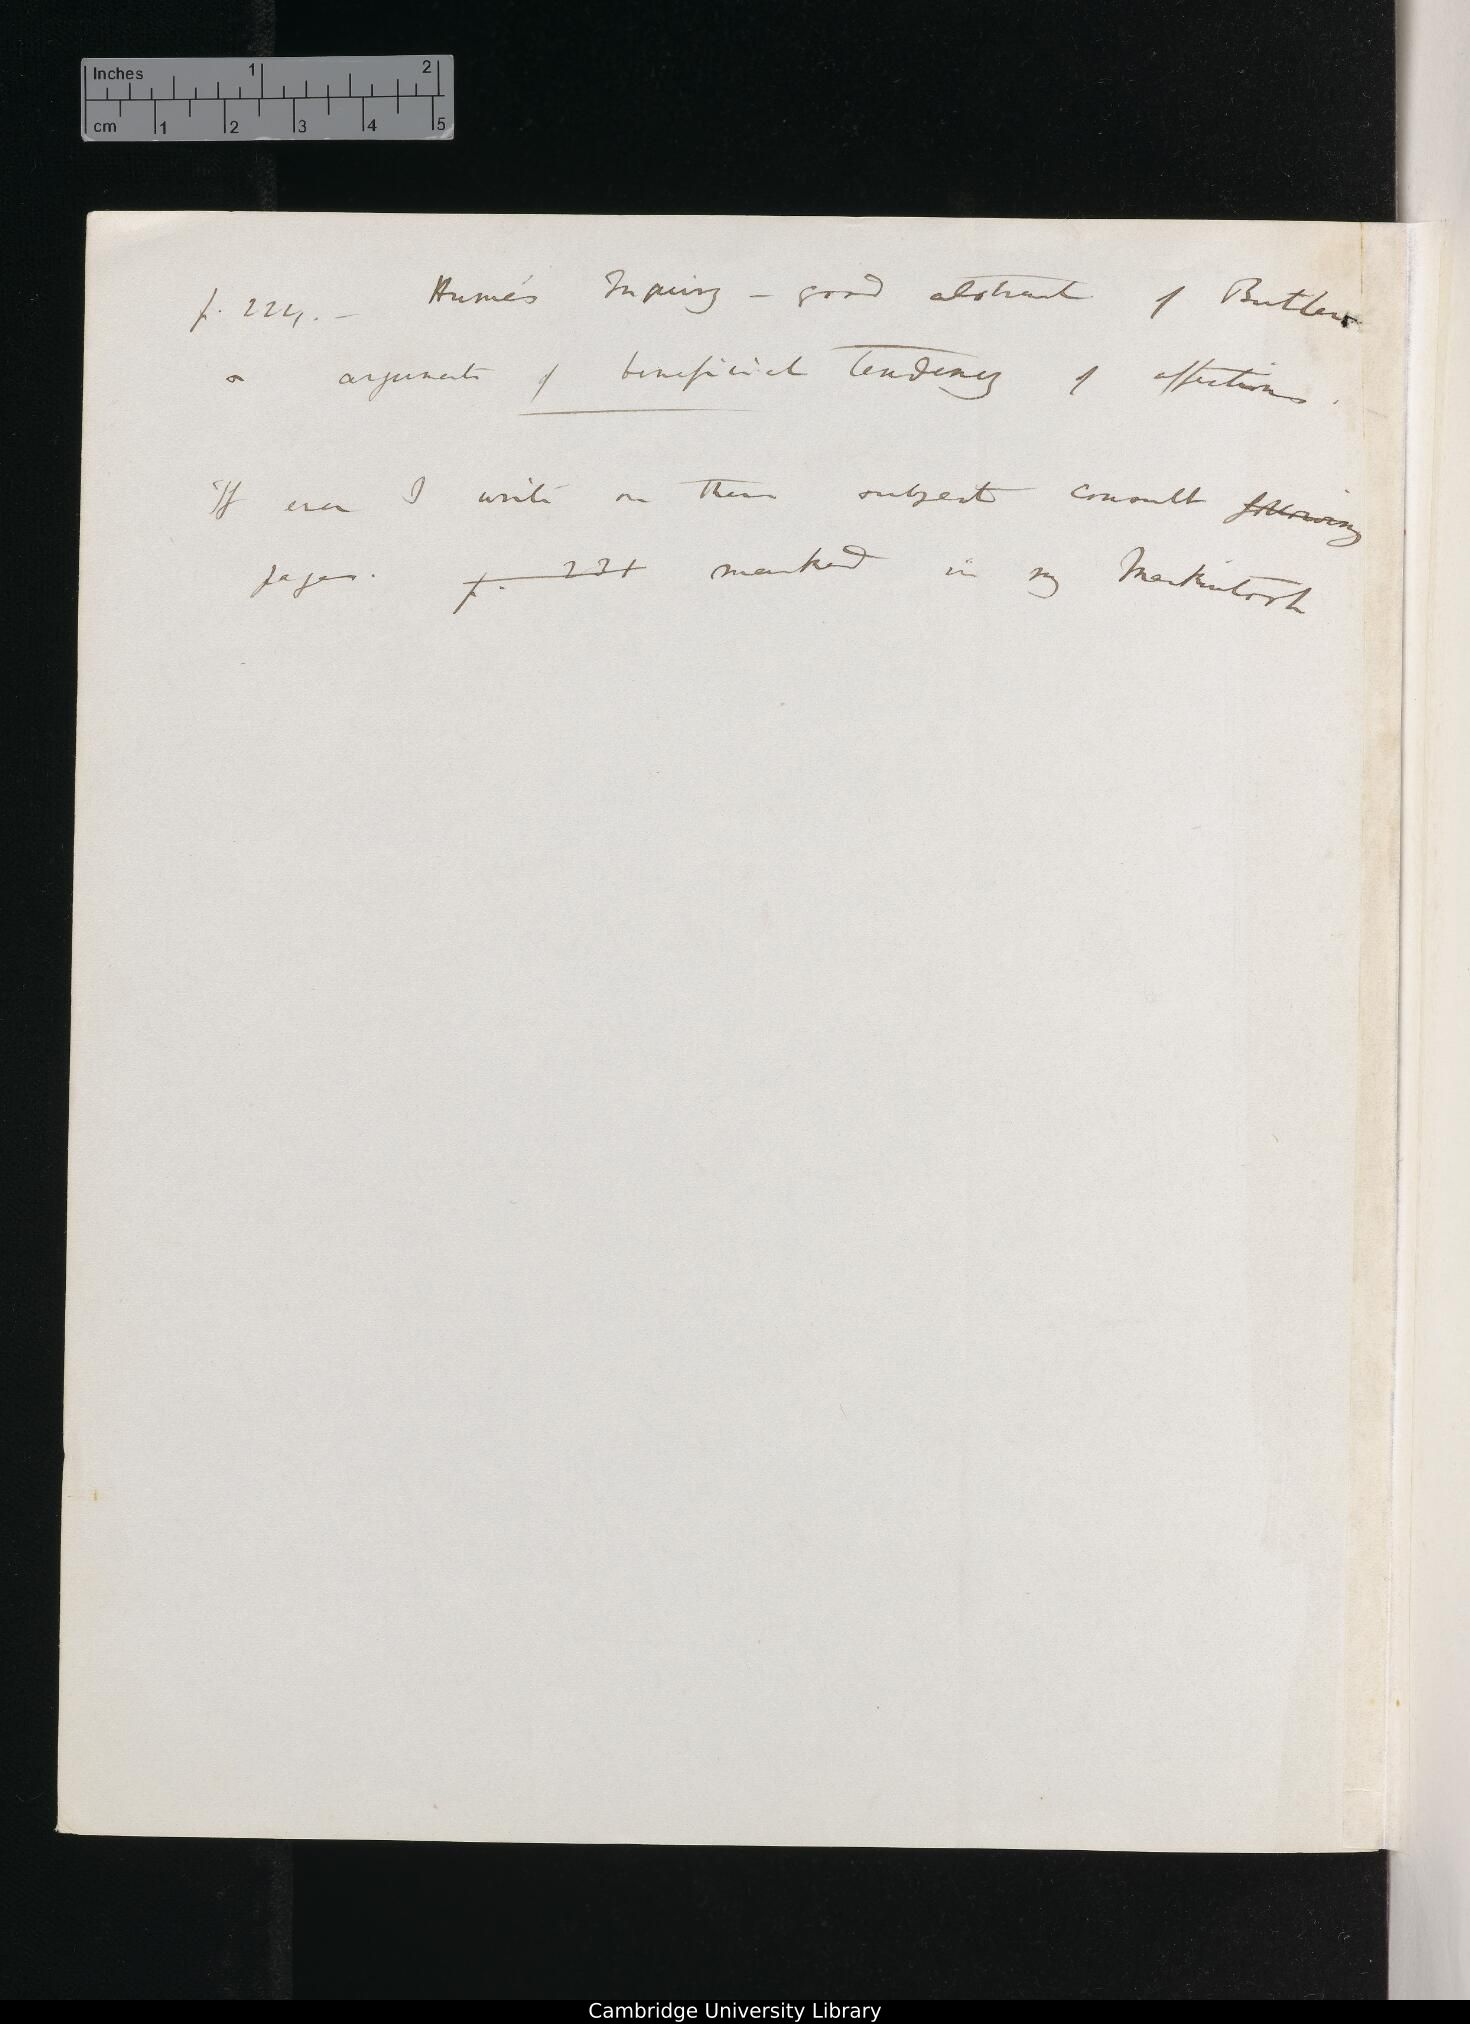 Inches 1 2
cm 1 2 3 4 5
p. 224. – Hume's Inquiry – good abstract of Butler's
arguments of beneficial tendency of affections.
If ever I write on these subject consult following
pages. p. 231 marked in my Mackintosh
Cambridge University Library